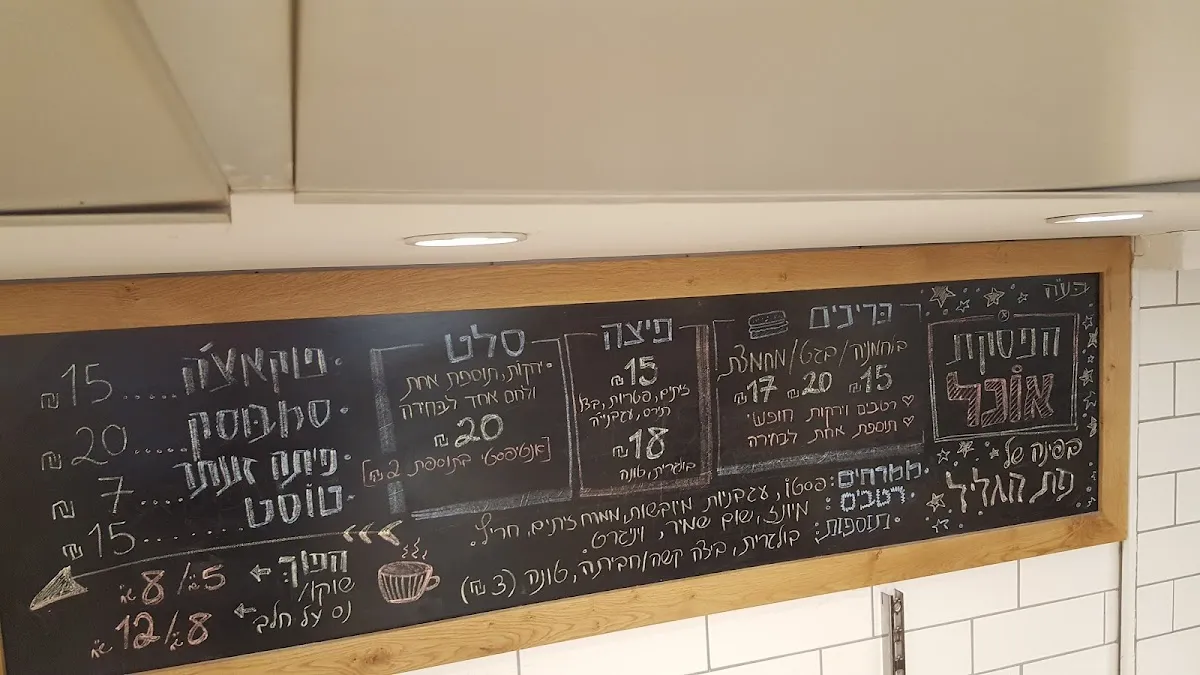 בע"ה
הפסקת
אוכל
בפינה של
פת הגליל
כריכים
בחמניה/בגט/מחמצת
15 ₪ 20 ₪ 17 ₪
רטבים וירקות חופשי
תוספת אחת לבחירה
פיצה
15 ₪
זיתים, פטריות, בצל
תירס, עגבנייה
18 ₪
בולגרית, טונה
סלט
ירקות, תוספת אחת
ולחם אחד לבחירה
20 ₪
[אנטיפסטי בתוספת 2 ₪]
ממרחים: פסטו, עגבניות מיובשות, ממרח זיתים, חריף.
רטבים: מיונז, שום שמיר, ויניגרט.
תוספות: בולגרית, ביצה קשה/חביתה, טונה (3 ₪)
פוקאצ'ה ..... 15 ₪
סמבוסק ..... 20 ₪
פיתה זעתר .... 7 ₪
טוסט ........ 15 ₪
הפוך ← 5 ₪/8 ₪
שוקו/
נס על חלב ← 8 ₪/12 ₪